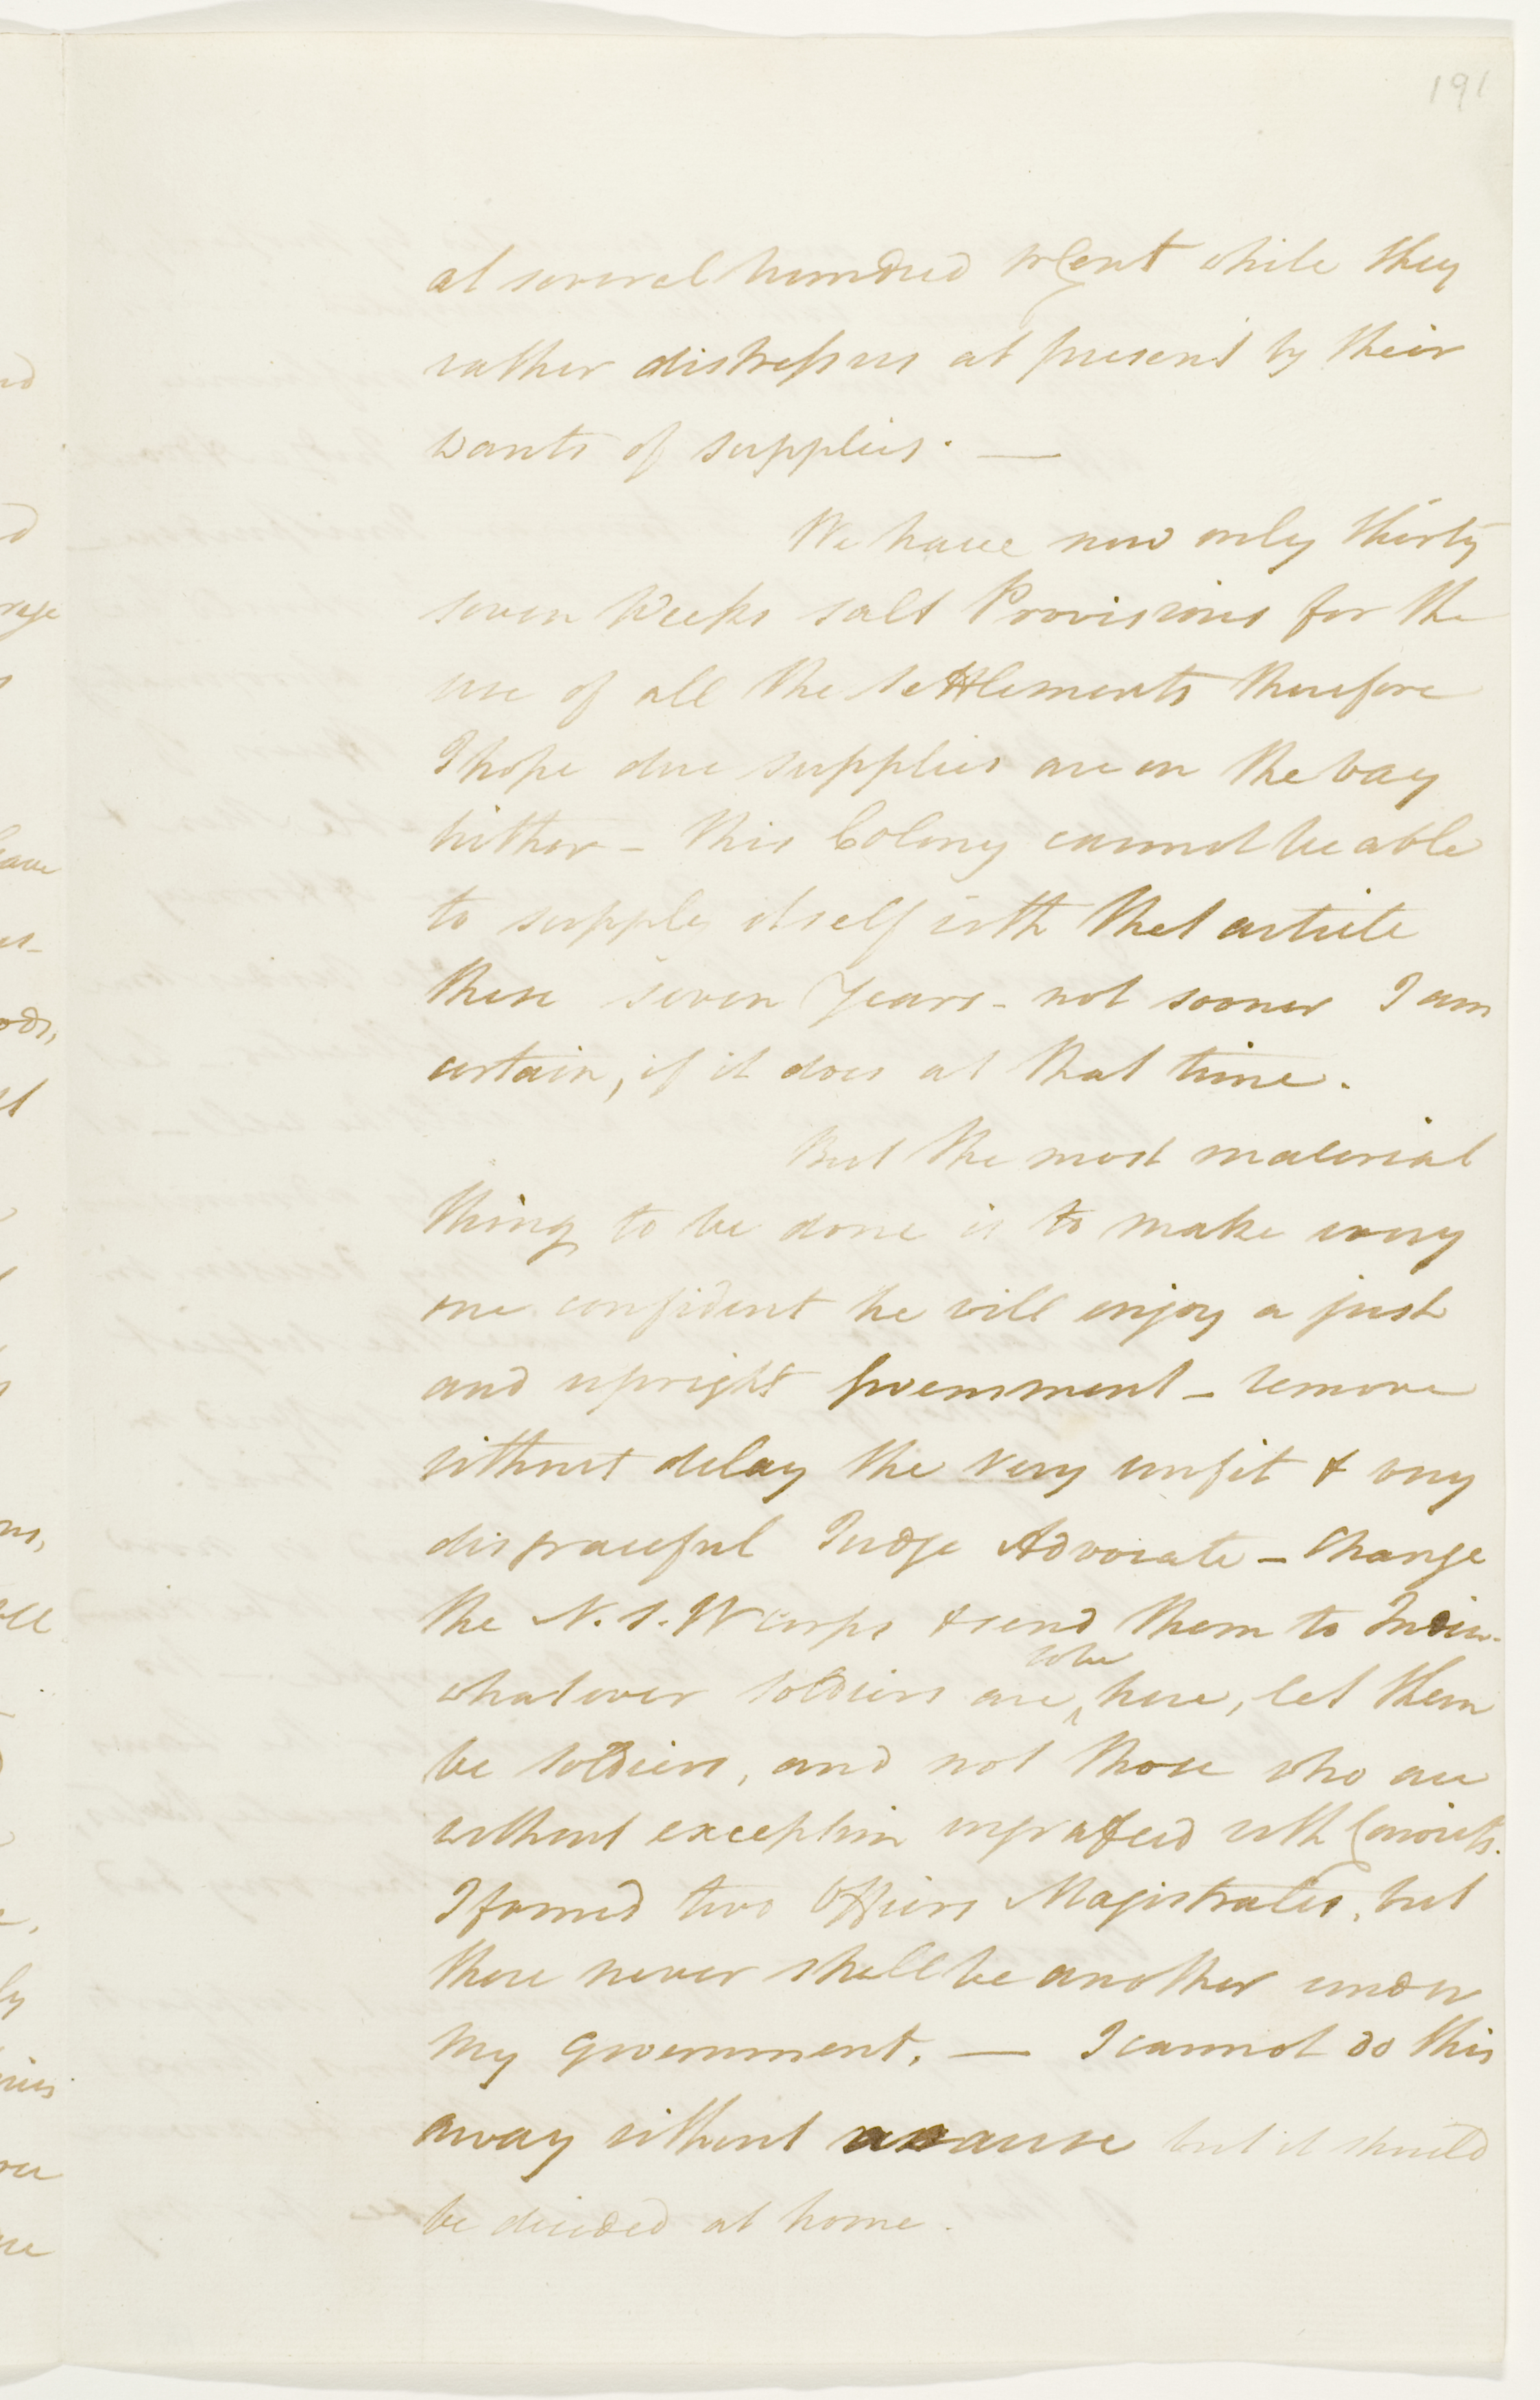 191
at several hundred pr Cent while they
rather distress us at present by their
wants of supplies. —
We have now only thirty
seven Weeks salt Provisions for the
use of all the settlements therefore
I hope due supplies are on the way
hither – this Colony cannot be able
to supply itself with that article
these seven Years – not sooner I am
certain, if it does at that time.
But the most material
thing to be done is to make every
one confident he will enjoy a just
and upright Government – remove
without delay the very unfit & very
disgraceful Judge Advocate – Change
the N. S. W Corps & send them to India –
to be
whatever soldiers are here, let them
be soldiers, and not those who are
without exception ingrafted with Convicts.
I formed two Officers Magistrates, but
there never shall be another under
my government. — I cannot do this
away without cause but it should
be decided at home.